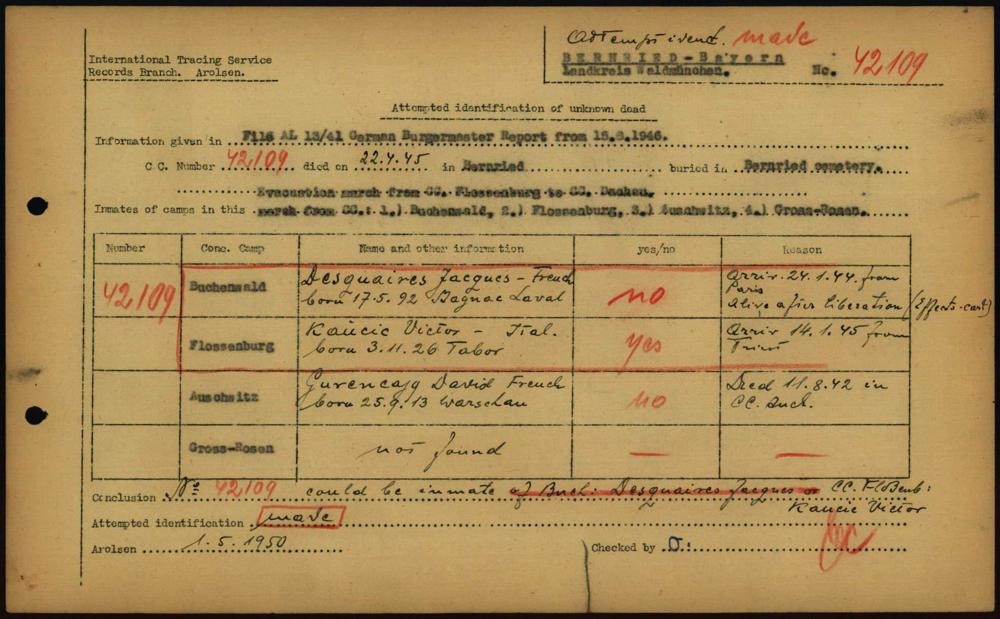 Attempt ident. made
International Tracing Service
Records Branch. Arolsen.
BERNRIED-Bayern
Landkreis Waldmünchen. No. 42109
Attempted identification of unknown dead
Information given in File AL 13/41 German Burgermaster Report from 15.6.1946.
C.C. Number 42109 died on 22.4.45 in Bernried buried in Bernried cemetery.
Evacuation march from CC. Flossenburg to CC. Dachau.
Inmates of camps in this march from CC.: 1.) Buchenwald, 2.) Flossenburg, 3.) Auschwitz, 4.) Gross-Rosen.
Number Conc. Camp Name and other information yes/no Reason
42109 Buchenwald Desquaires Jacques - French no Arriv. 24.1.44 from
born 17.5.92 Laval Paris
Alive after liberation (Effects-cart)
Flossenburg Kaucic Victor - Ital. yes Arriv 14.1.45 from
born 3.11.26 Tabor Triest
Auschwitz David French no Died 11.8.42 in
born 25.9.13 Warschau CC. Auch.
Gross-Rosen not found — —
Conclusion No 42109 could be inmate of Buch: Desquaires Jacques or CC. Floßenb:
Kaucic Victor
Attempted identification made
Arolsen 1.5.1950 Checked by